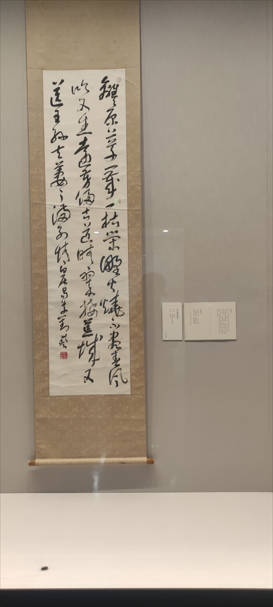 離〻原上草一歲一枯榮野火燒不盡春風
吹又生遠芳侵古道晴翠接荒城又
送王孫去萋〻滿別情白居易